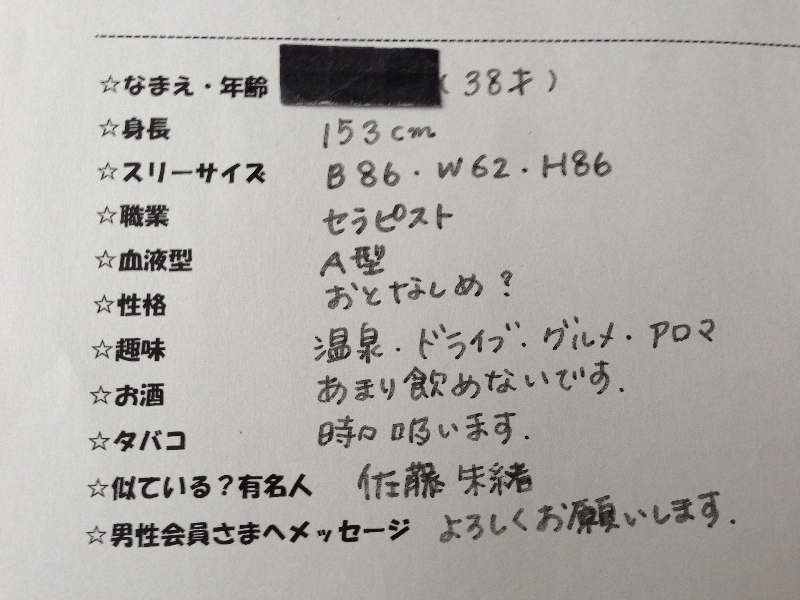 ☆なまえ・年齢 (38才)
☆身長 153cm
☆スリーサイズ B86・W62・H86
☆職業 セラピスト
☆血液型 A型
☆性格 おとなしめ?
☆趣味 温泉・ドライブ・グルメ・アロマ
☆お酒 あまり飲めないです.
☆タバコ 時々吸います.
☆似ている?有名人 佐藤朱緒
☆男性会員さまへメッセージ よろしくお願いします.